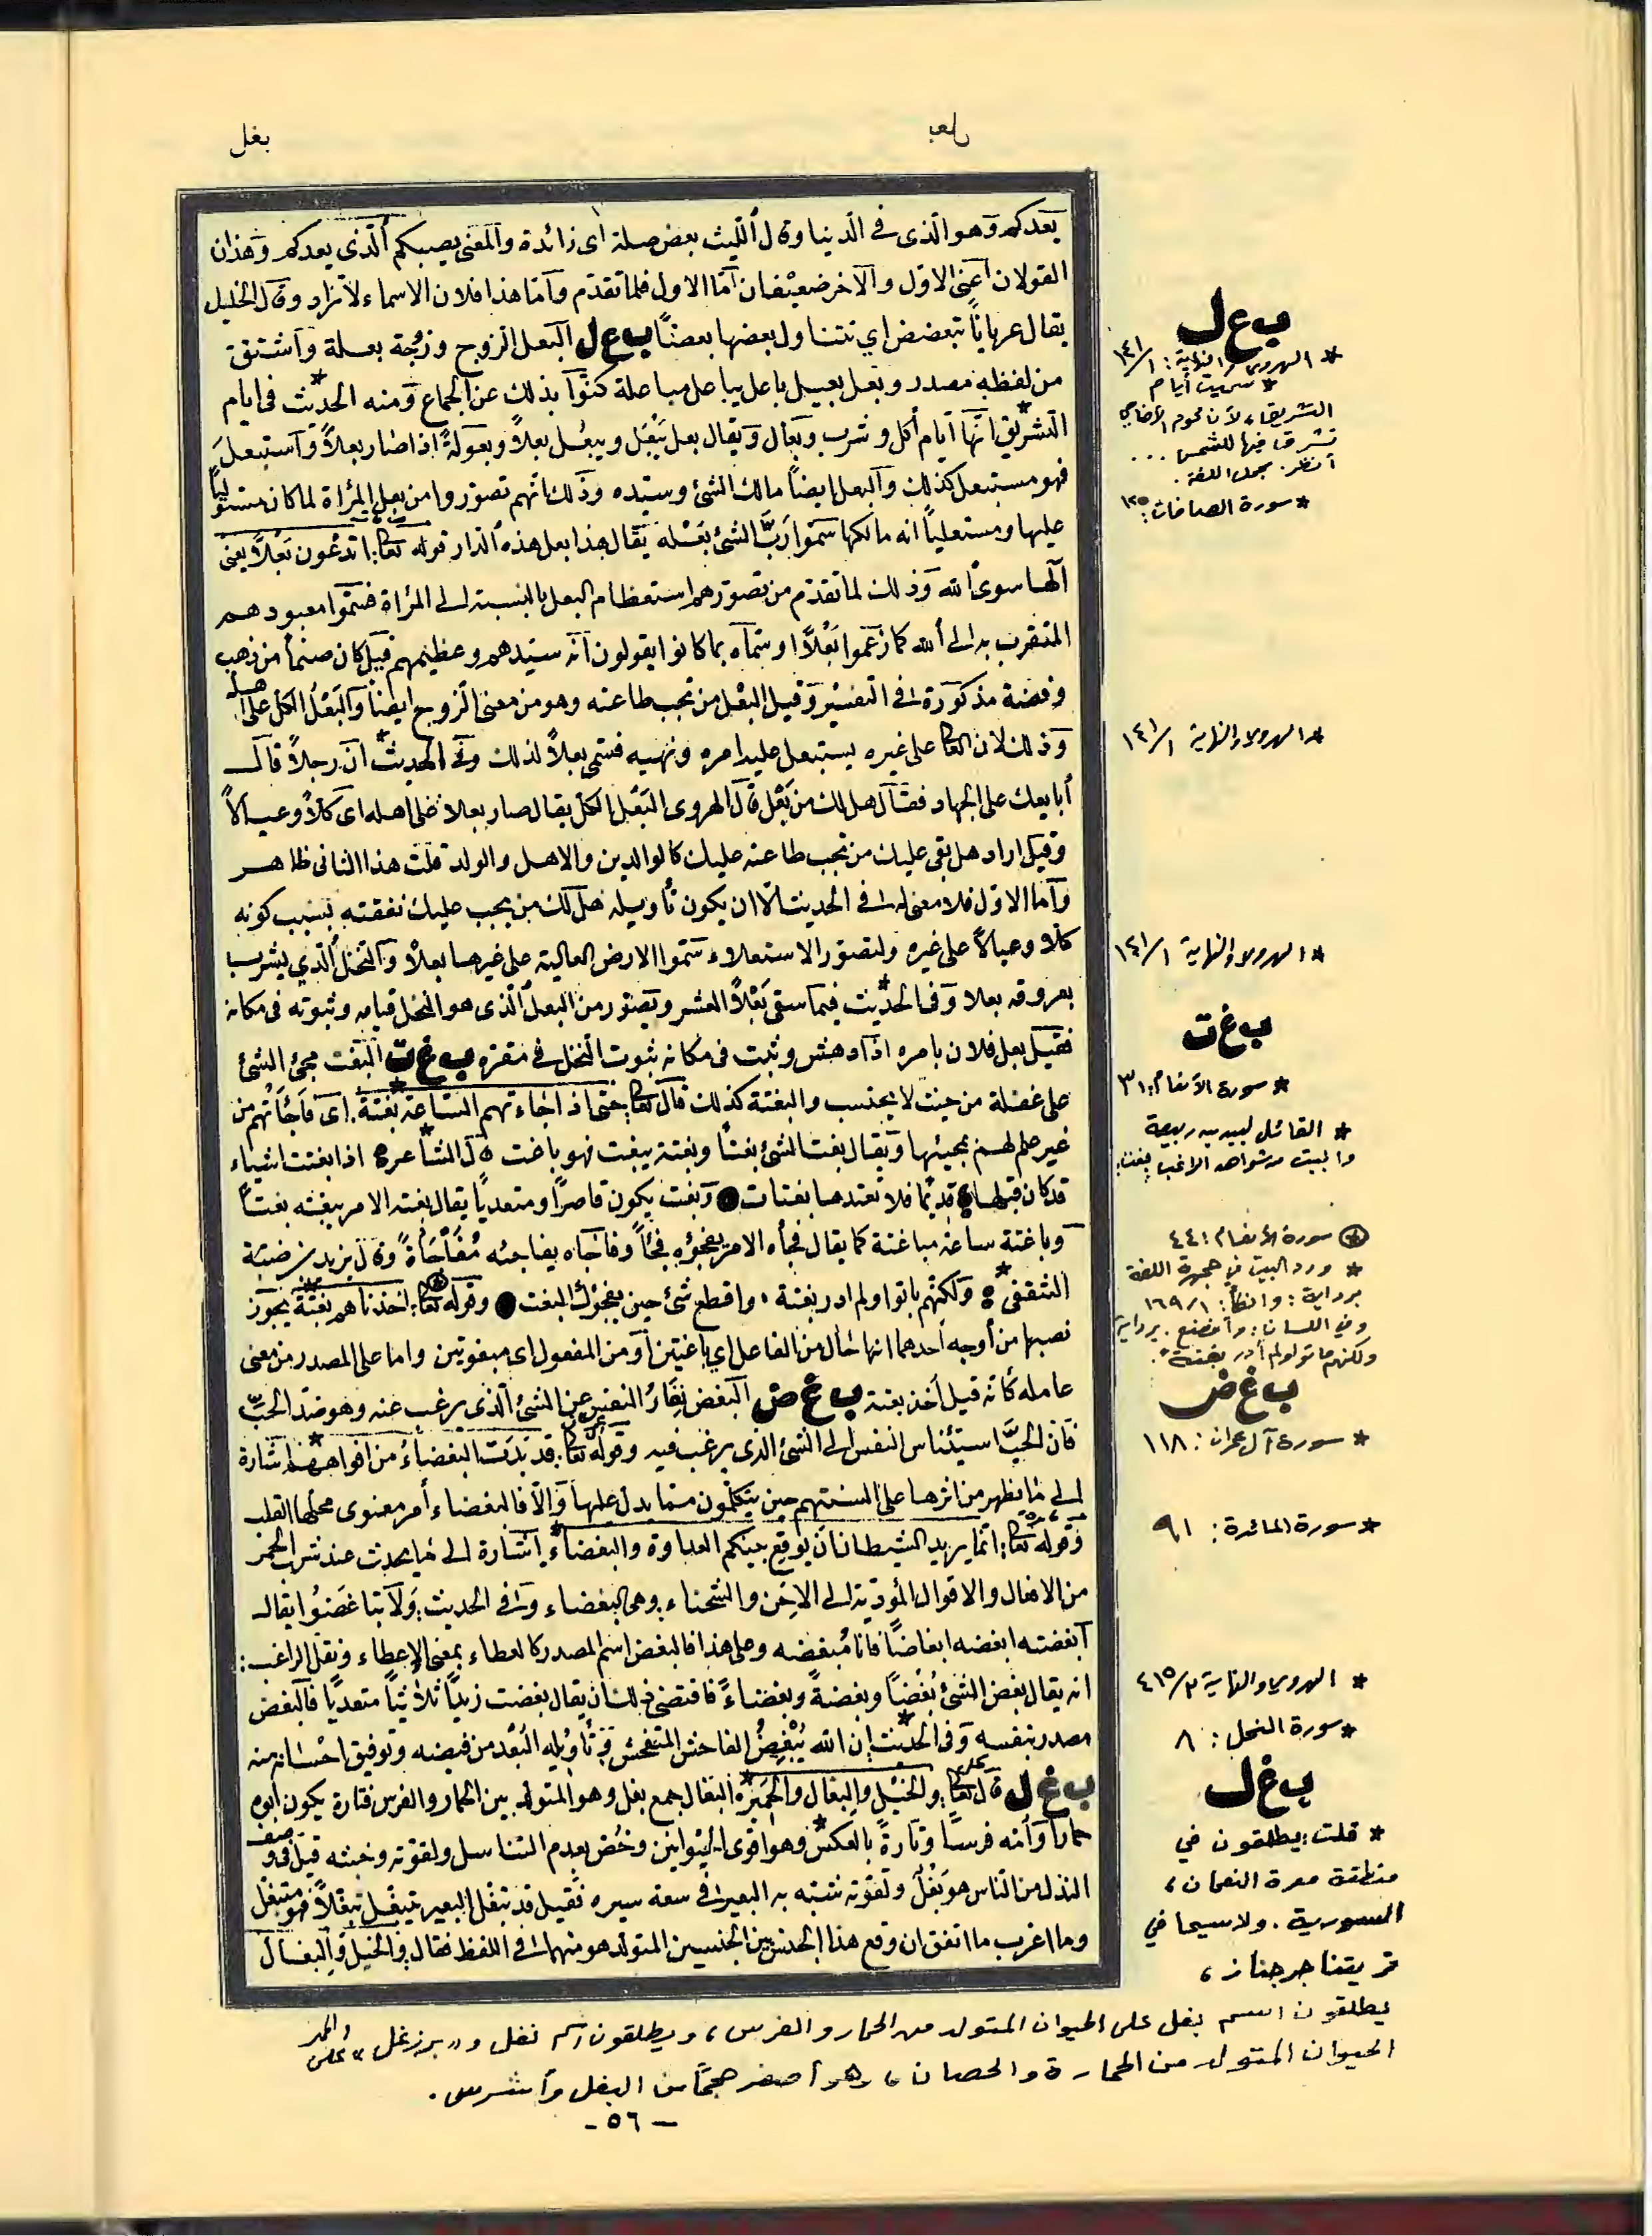 بعل
بغل
يعدكم وهو الذى فى الدنيا وقال الليث بعض صلة اى زائدة والمعنى يصيبكم الذى يعدكم وهذان
القولان اعنى الاول والآخر ضعيفان اما الاول فلما تقدم واما هذا فلان الاسماء لا تزاد وقال الخليل
يقال عربانا تبعضض اي تتناول بعضها بعضاً ب ع ل البعل الزوج وزوجة بعلة واشتق
من لفظه مصدر وبعل بعيل باعل يباعل مباعلة كنوا بذلك عن الجماع ومنه الحديث فى ايام
التشريق انها ايام أكل وشرب وبعال ويقال بعل يبعل ويبعل بعلاً وبعولةً اذا صار بعلاً واستبعل
فهو مستبعل كذلك والبعل ايضاً مالك الشئ وسيده وذلك انهم تصوروا من بعل المرأة لما كان مستولياً
عليها ومستعلياً انه مالكها سموا رب الشئ بعله يقال هذا بعل هذه الدار قوله تعالى: اتدعون بعلاً يعنى
آلها سوى الله وذلك لما تقدم من تصورهم استعظام البعل بالنسبة الى المرأة فسموا معبودهم
المتقرب به الى الله كما زعموا بعلاً او سماه بما كانوا يقولون انه سيدهم وعظيمهم قيل كان صنماً من ذهب
وفضة مذكورة فى التفسير وقيل البعل من تجب طاعته وهو من معنى الزوج ايضاً والبعل الكل على اهله
وذلك لان العالى على غيره يستبعل عليه امره ونهيه فسمى بعلاً لذلك وفى الحديث ان رجلاً قال
أبايعك على الجهاد فقال هل لك من بعل قال الهروى البعل الكل يقال صار بعلا على اهله اى كلاً وعيالاً
وقيل اراد هل بقى عليك من تجب طاعته عليك كالوالدين والاهل والولد قلت هذا الثانى ظاهر
واما الاول فلا معنى له فى الحديث الا ان يكون تأويله هل لك من يجب عليك نفقته بسبب كونه
كلا وعيالاً على غيره ولتصور الاستعلاء سموا الارض العالية على غيرها بعلاً والنخل الذي يشرب
بعروقه بعلا وفى الحديث فيما سقى بعلاً العشر وتصور من البعل الذى هو النخل قيامه وثبوته فى مكانه
فقيل بعل فلان بامره اذا دهش وثبت فى مكانه ثبوت النخل فى مقره ب غ ت البغت مجئ الشئ
على غفلة من حيث لا يحتسب والبغتة كذلك قال تعالى: حتى اذا جاءتهم الساعة بغتة. اى فاجأتهم من
غير علم لهم بمجيئها ويقال بغت الشئ بغتاً وبغتة يبغت فهو باغت قال الشاعر: اذا بغتت اشياء
قد كان قبلها قديما فلا تعتدها بغتات وبغت يكون قاصراً ومتعدياً يقال بغته الامر يبغته بغتاً
وباغتة ساعة مباغتة كما يقال فجأه الامر يفجؤه فجأ وفاجأه يفاجئه مفاجأةً وقال يزيد بن ضبة
الثقفى: ولكنهم باتوا ولم ادر بغتة، وافظع شئ حين يفجؤك البغت وقوله تعالى: اخذناهم بغتة يجوز
نصبها من أوجه أحدهما انها حال من الفاعل اي باغتين او من المفعول اى مبغوتين واما على المصدر من معنى
عامله كأنه قيل أخذ بغتة ب غ ض البغض نفار النفس عن الشئ الذى يرغب عنه وهو ضد الحب
فان الحب استيناس النفس الى الشئ الذى يرغب فيه وقوله تعالى: قد بدت البغضاء من افواههم اشارة
الى ما يظهر من اثرها على السنتهم حين يتكلمون مما يدل عليها والا فالبغضاء أمر معنوى محلها القلب
وقوله تعالى: انما يريد الشيطان ان يوقع بينكم العداوة والبغضاء اشارة الى ما يحدث عند شرب الخمر
من الافعال والاقوال المؤدية الى الاحن والشحناء وهى البغضاء وفى الحديث: ولا تباغضوا يقال
ابغضته ابغضه ابغاضاً فانا مبغضه وعلى هذا فالبغض اسم المصدر كالعطاء بمعنى الاعطاء ونقل الراغب:
انه يقال بغض الشئ بغضاً وبغضةً وبغضاءً فاقتضى ذلك ان يقال بغضت زيداً ثلاثياً متعدياً فالبغض
مصدر بنفسه وفى الحديث إن الله يبغض الفاحش المتفحش فتأويله البعد من فيضه وتوفيق احسانه منه
ب غ ل قال تعالى: والخيل والبغال والحمير البغال جمع بغل وهو المتولد بين الحمار والفرس فتارة يكون ابوه
حماراً وأمه فرساً وتارةً بالعكس وهو اقوى الحيوانين وخص بعدم التناسل ولقوته وخبثه قيل فى وصف
النذل من الناس هو بغل ولقوته شبه به البعير فى سعة سيره فقيل قد تبغل البعير يتبغل تبغلاً فهو متبغل
وما اغرب ما اتفق ان وقع هذا الجنس بين الجنسين المتولد هو منهما فى اللفظ فقال والخيل والبغال
ب ع ل
* الهروي والنهاية: ١/١٤١
* سميت أيام
التشريق، لأن لحوم الأضاحي
تشرق فيها للشمس ...
انظر. مجمل اللغة.
* سورة الصافات: ١٢٥
* الهروي والنهاية ١/١٤١
* الهروي والنهاية ١/١٤١
ب غ ت
* سورة الأنعام: ٣١
* القائل لبيد بن ربيعة
والبيت من شواهد الراغب بغت.
* سورة الأنعام: ٤٤
* ورد البيت في جمهرة اللغة
برواية: وانكأ: ١/١٦٩
وفي اللسان: وأفظع. برواية
ولكنهم ماتوا ولم أدر بغتة".
ب غ ض
* سورة آل عمران: ١١٨
* سورة المائدة: ٩١
* الهروي والنهاية ٣/٤١٥
* سورة النحل: ٨
ب غ ل
* قلت: يطلقون في
منطقة معرة النعمان،
السورية. ولا سيما في
قريتنا جرجناز،
يطلقون اسم بغل على الحيوان المتولد من الحمار والفرس، ويطلقون اسم نغل و" برزغل " على
الحيوان المتولد من الحمارة والحصان، وهو أصغر حجماً من البغل وأشرس.
- ٥٦ -